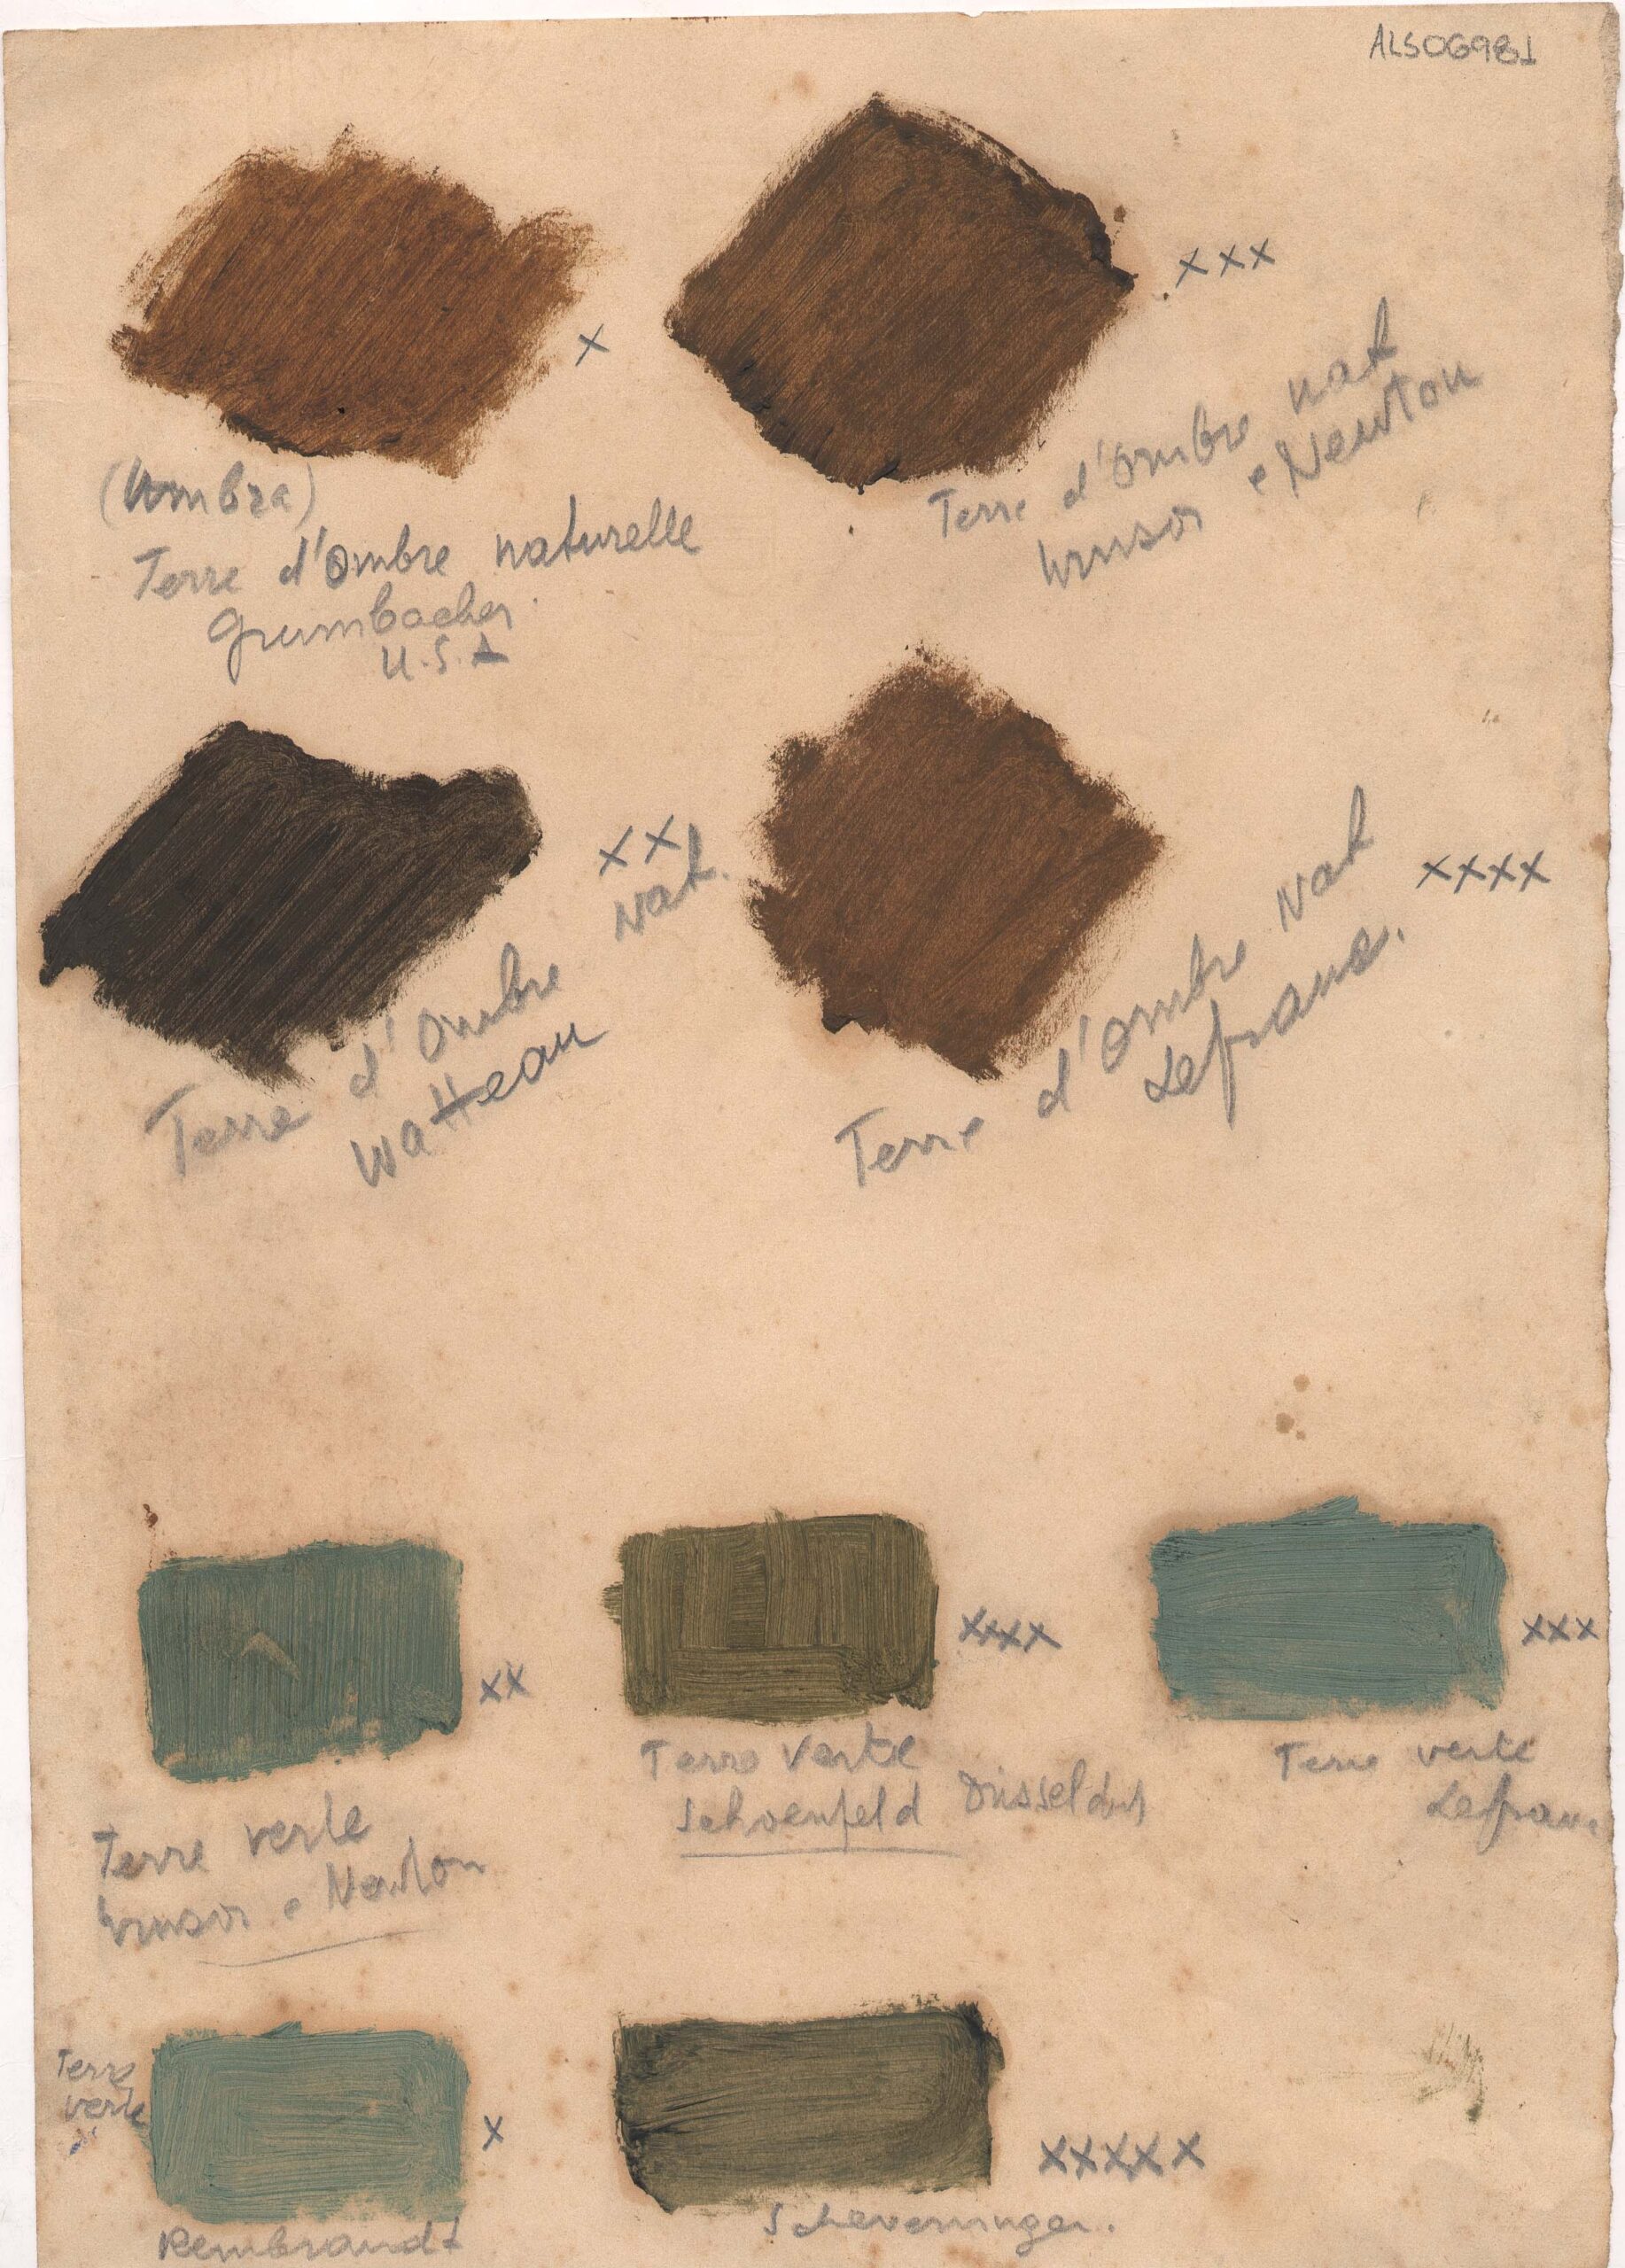 ALS06981
x
xxx
(Umbra)
Terre d'Ombre naturelle
Grumbacher.
U.S.A
Terre d'Ombre nat
Winsor e Newton
xx
Terre d'Ombre Nat.
Watteau
xxxx
Terre d'Ombre Nat
Lefranc.
xx
Terre verte
Winsor e Newton
xxxx
Terre Verte
Schoenfeld Düsseldorf
xxx
Terre verte
Lefranc
Terre
verte
x
Rembrandt
xxxxx
Scheveninger.